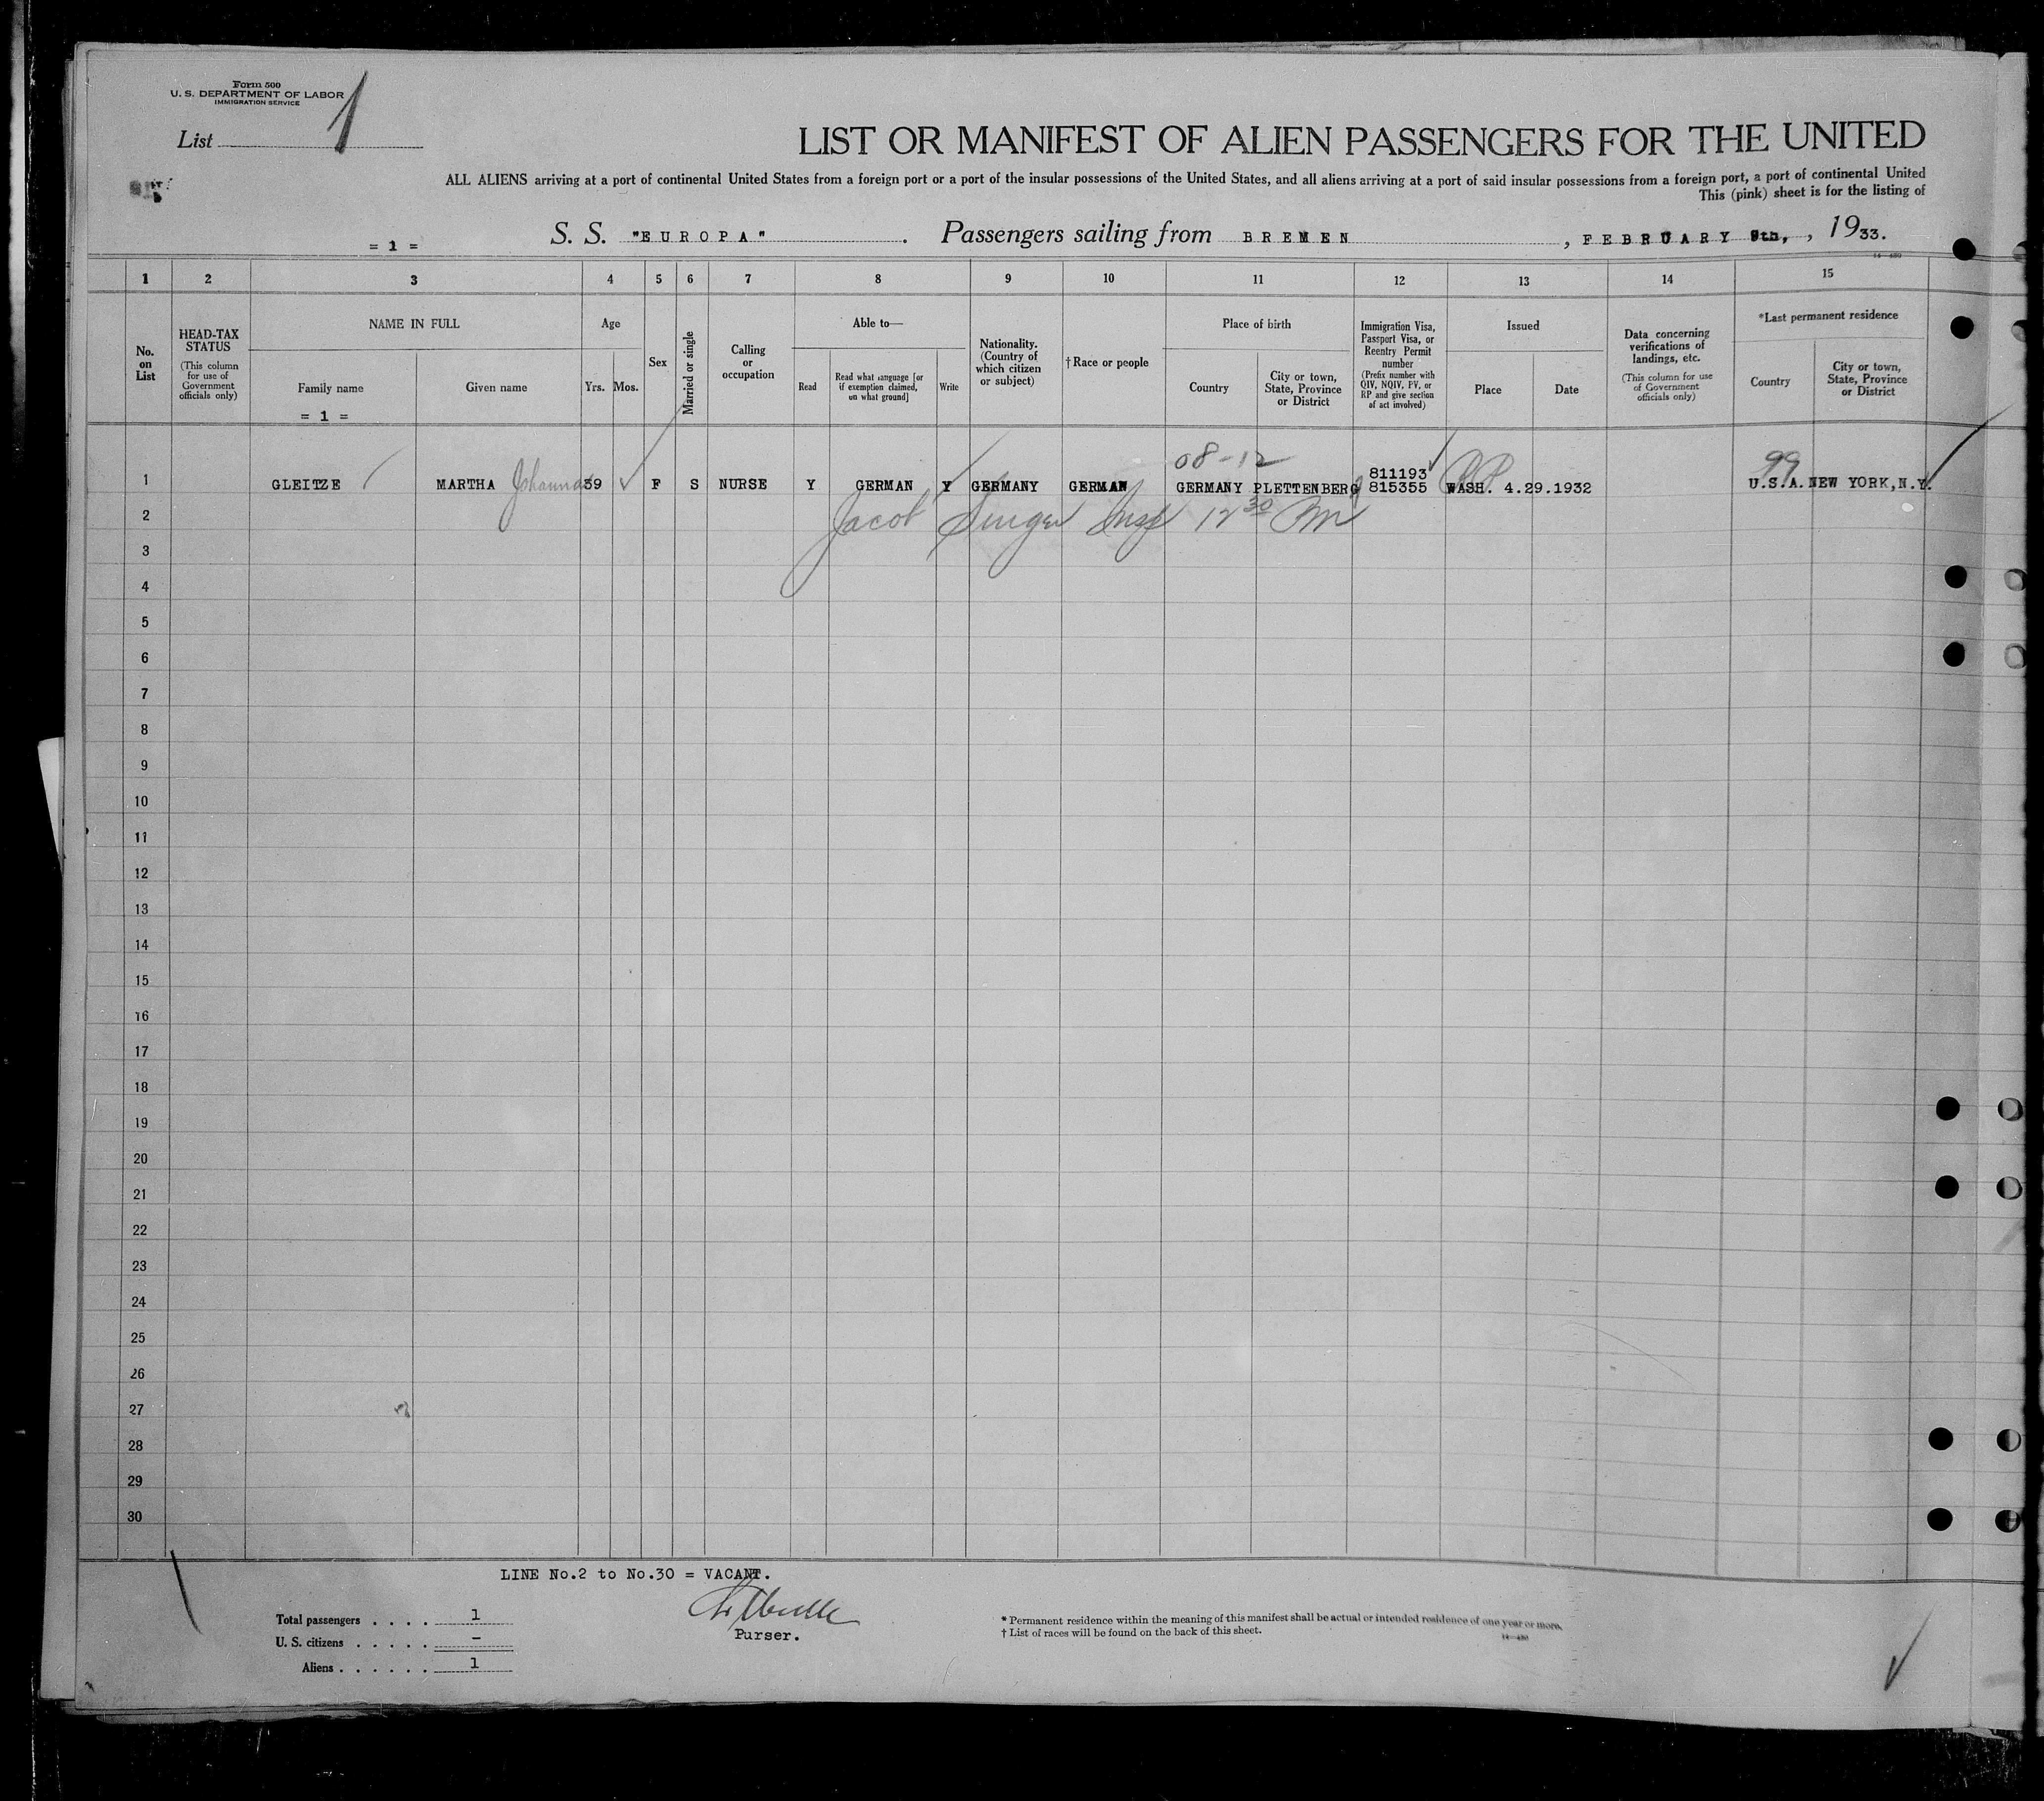 Form 500
U. S. DEPARTMENT OF LABOR
IMMIGRATION SERVICE
List 1
LIST OR MANIFEST OF ALIEN PASSENGERS FOR THE UNITED
ALL ALIENS arriving at a port of continental United States from a foreign port or a port of the insular possessions of the United States, and all aliens arriving at a port of said insular possessions from a foreign port, a port of continental United
This (pink) sheet is for the listing of
= 1 = S. S. "EUROPA" . Passengers sailing from BREMEN , FEBRUARY 9th, , 1933.
14—480
1 2 3 4 5 6 7 8 9 10 11 12 13 14 15
No. on List
HEAD-TAX STATUS
(This column for use of Government officials only)
NAME IN FULL
Family name
= 1 =
Given name
Age
Yrs. Mos.
Sex
Married or single
Calling or occupation
Able to—
Read
Read what language [or if exemption claimed, on what ground]
Write
Nationality. (Country of which citizen or subject)
†Race or people
Place of birth
Country
City or town, State, Province or District
Immigration Visa, Passport Visa, or Reentry Permit number
(Prefix number with QIV, NQIV, PV, or RP and give section of act involved)
Issued
Place
Date
Data concerning verifications of landings, etc.
(This column for use of Government officials only)
*Last permanent residence
Country
City or town, State, Province or District
08-12
99
811193
1 GLEITZE MARTHA Johanna 39 F S NURSE Y GERMAN Y GERMANY GERMAN GERMANY PLETTENBERG 815355 WASH. 4.29.1932 U.S.A. NEW YORK,N.Y.
2 Jacob Singer Insp 12 30 Pm
3
4
5
6
7
8
9
10
11
12
13
14
15
16
17
18
19
20
21
22
23
24
25
26
27
28
29
30
LINE No.2 to No.30 = VACANT.
Total passengers . . . . 1
U. S. citizens . . . . . –
Aliens . . . . . . 1
Purser.
* Permanent residence within the meaning of this manifest shall be actual or intended residence of one year or more.
† List of races will be found on the back of this sheet.
14—480